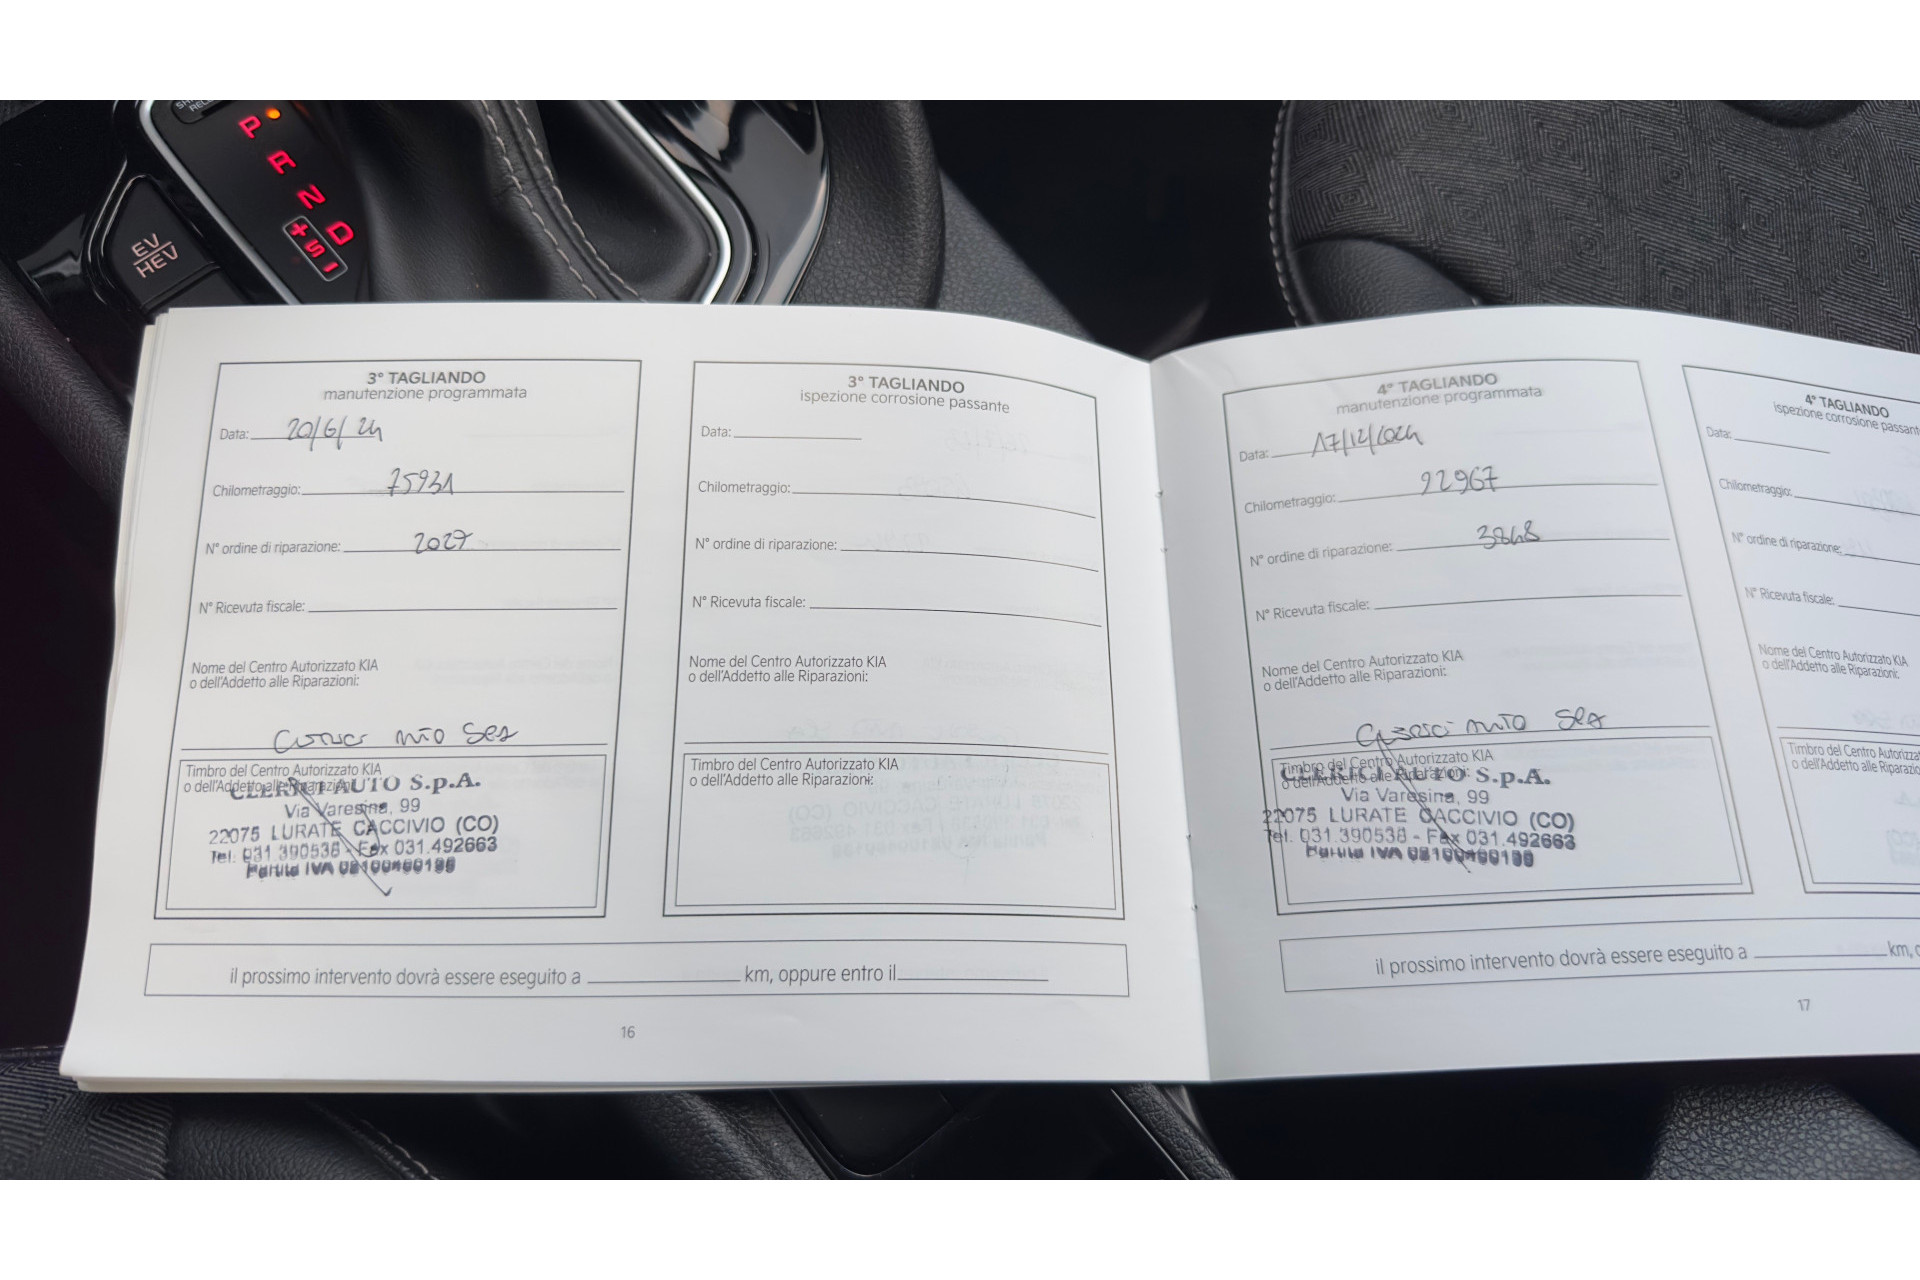 P
R
N
D
+
S
-
EV
HEV
3° TAGLIANDO
manutenzione programmata
Data: 20/6/24
Chilometraggio: 75931
N° ordine di riparazione: 2027
N° Ricevuta fiscale:
Nome del Centro Autorizzato KIA
o dell'Addetto alle Riparazioni:
Clerici Auto SpA
Timbro del Centro Autorizzato KIA
o dell'Addetto alle Riparazioni:
CLERICI AUTO S.p.A.
Via Varesina, 99
22075 LURATE CACCIVIO (CO)
Tel. 031.390538 - Fax 031.492663
Partita IVA
3° TAGLIANDO
ispezione corrosione passante
Data:
Chilometraggio:
N° ordine di riparazione:
N° Ricevuta fiscale:
Nome del Centro Autorizzato KIA
o dell'Addetto alle Riparazioni:
Timbro del Centro Autorizzato KIA
o dell'Addetto alle Riparazioni:
il prossimo intervento dovrà essere eseguito a km, oppure entro il
16
4° TAGLIANDO
manutenzione programmata
Data: 17/12/2024
Chilometraggio: 92967
N° ordine di riparazione: 3848
N° Ricevuta fiscale:
Nome del Centro Autorizzato KIA
o dell'Addetto alle Riparazioni:
Clerici Auto SpA
Timbro del Centro Autorizzato KIA
o dell'Addetto alle Riparazioni:
CLERICI AUTO S.p.A.
Via Varesina, 99
22075 LURATE CACCIVIO (CO)
Tel. 031.390538 - Fax 031.492663
Partita IVA
4° TAGLIANDO
ispezione corrosione passant
Data:
Chilometraggio:
N° ordine di riparazione:
N° Ricevuta fiscale:
Nome del Centro Autorizzato KIA
o dell'Addetto alle Riparazioni:
Timbro del Centro Autorizzat
o dell'Addetto alle Riparazio
il prossimo intervento dovrà essere eseguito a km,
17